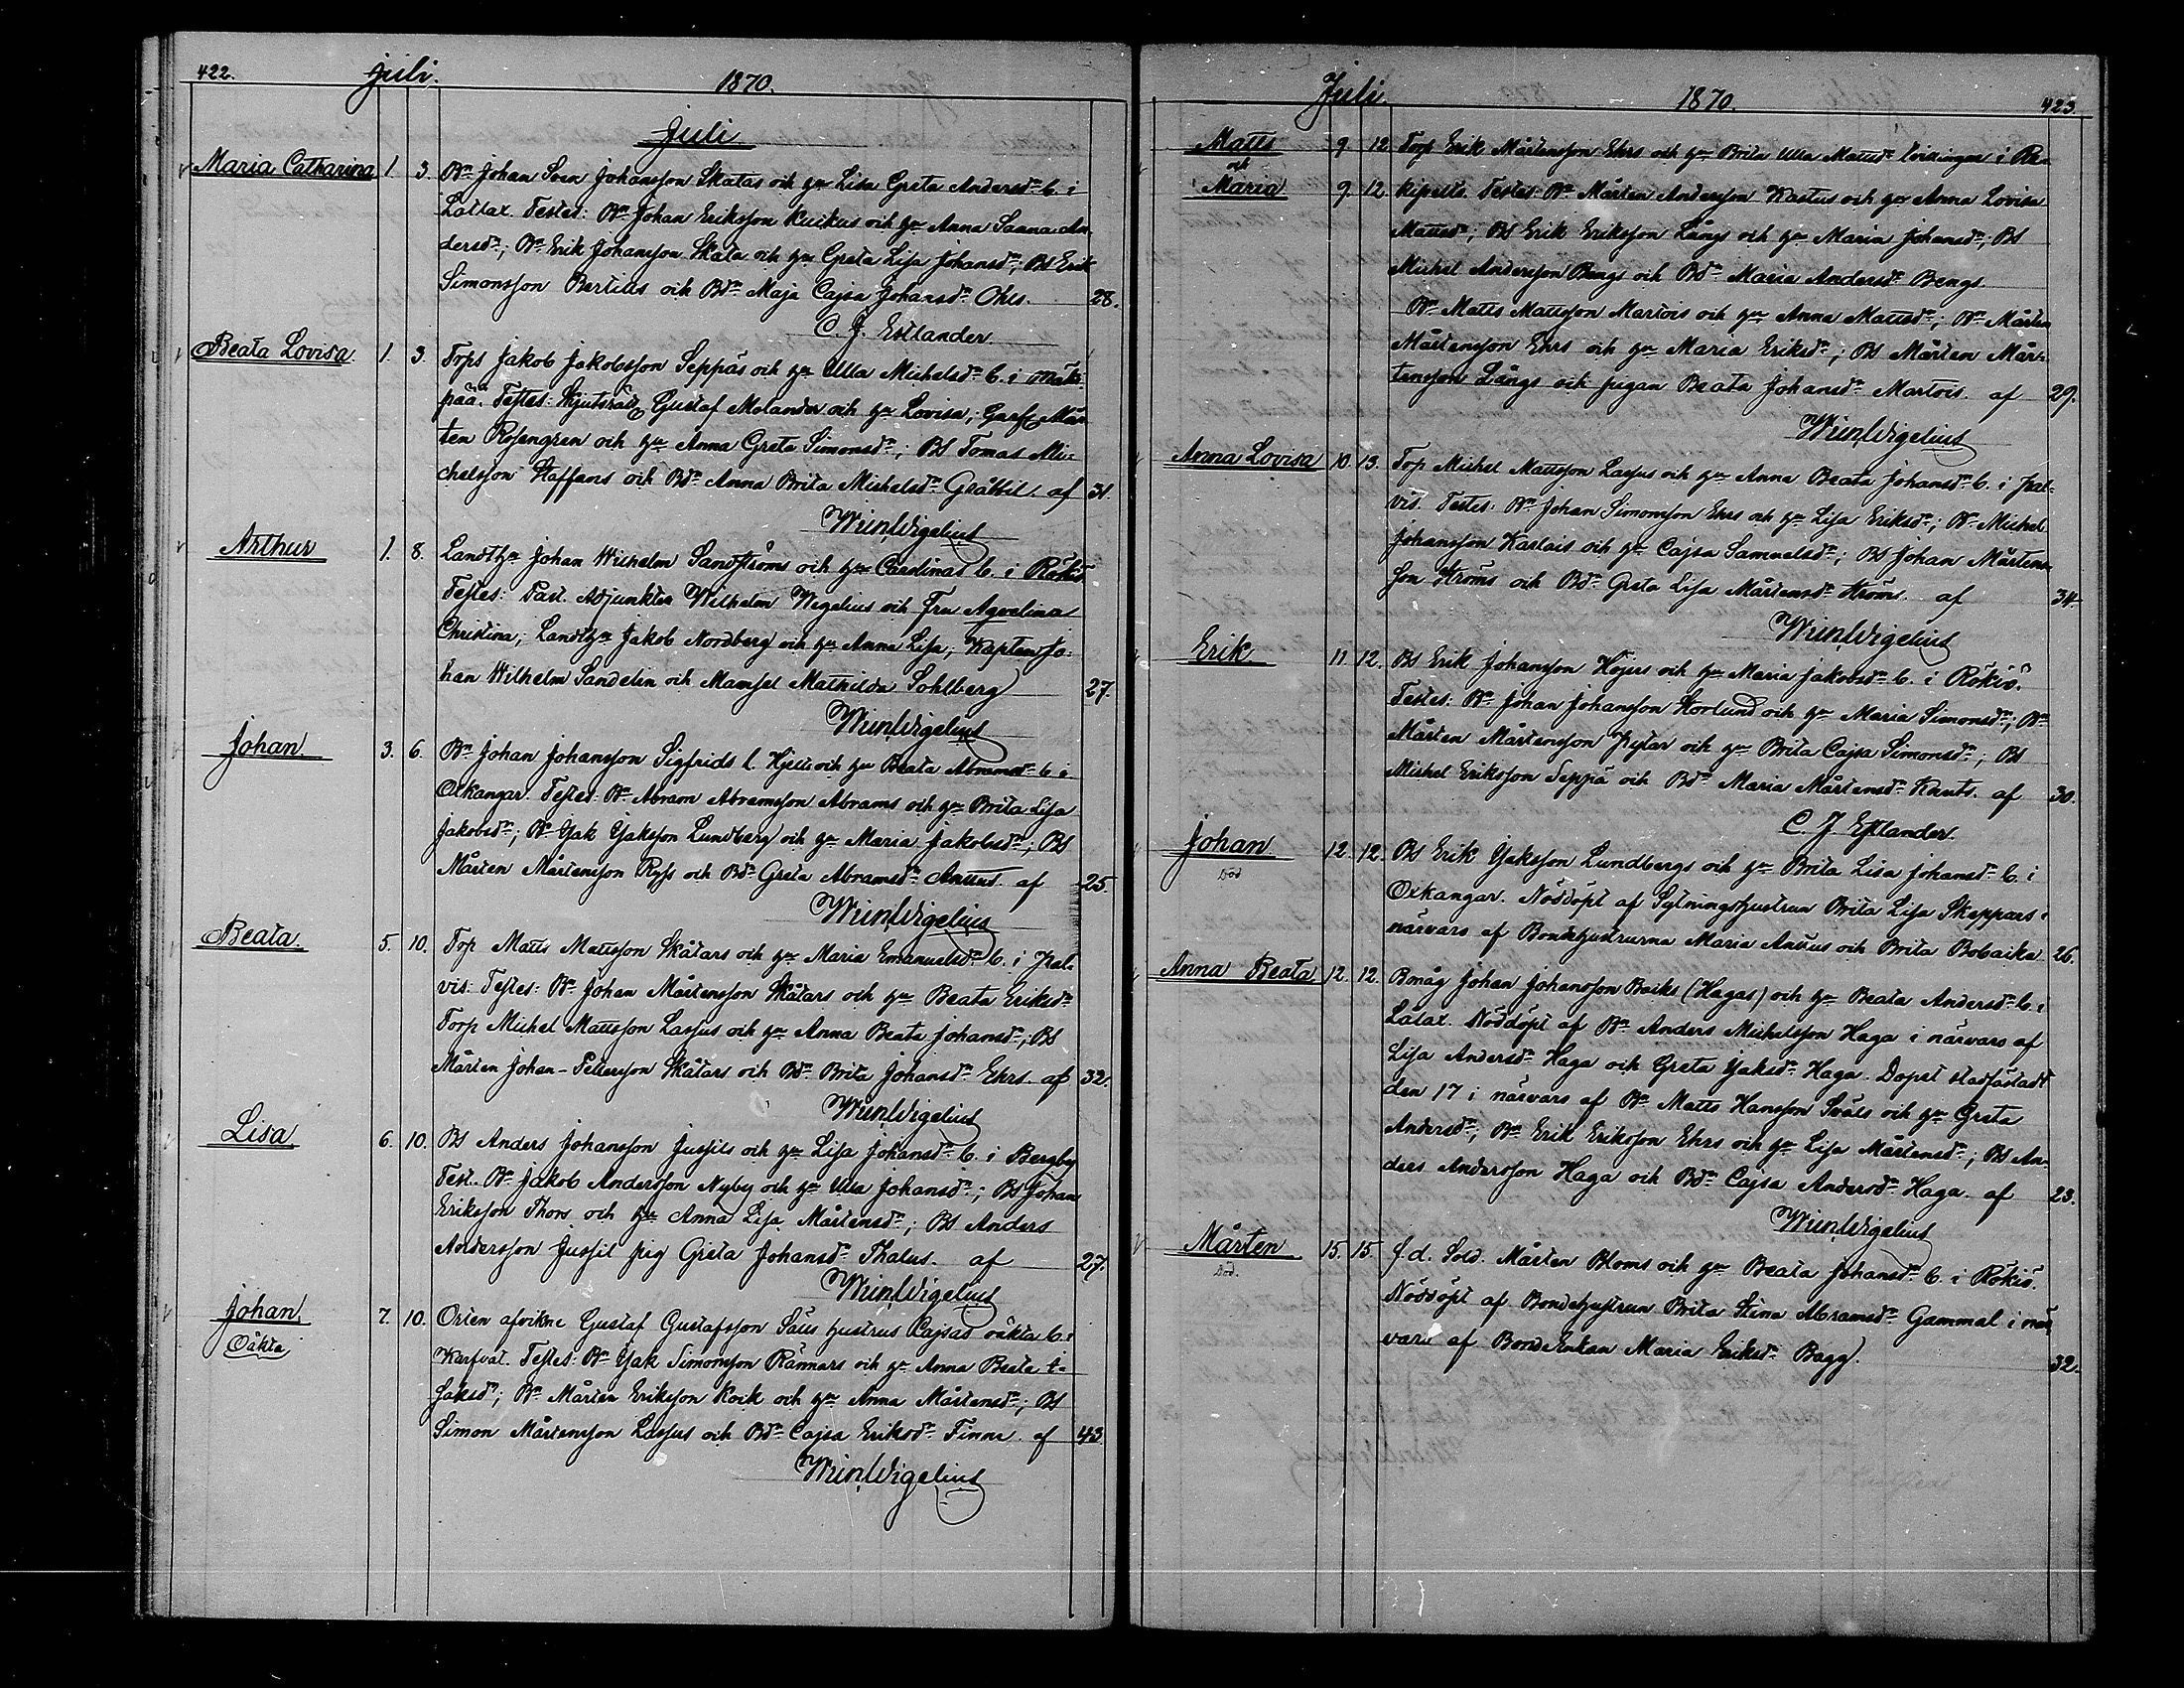 422. Juli. 1870.
Juli
Maria Catharina 1. 3. Bn Johan Sven Johansson Skatas och hu Lisa Greta Andersdr b. i
Lattax. Testes: Bn Johan Eriksson Kuikus och hu Anna Sanna An-
dersdr; Bn Erik Johansson Skata och hu Greta Lisa Johansdr; BS Erik
Simonsson Bertills och Bdr Maja Cajsa Johansdr Ohls. 28.
C. J. Estlander
Beata Lovisa 1. 3. Torp Jakob Jakobsson Seppäs och hu Ulla Michelsdr b. i
pää. Testes: Gustaf Molander och hu Lovisa; Garf. Mår-
ten Rosengren och hu Anna Greta Simonsdr; BS Tomas Mi-
chelsson Staffans och Bdr Anna Brita Michelsdr Gräbbil. af 31.
Wilh Wigelius
Arthur 1. 8. Landth Johan Wilhelm Sandströms och hu Carolinas b. i Rökiö
Testes: Past. Adjunkten Wilhelm Wegelius och Fru Agvelina
Christina; Landth Jakob Nordberg och hu Anna Lisa; Kapten Jo-
han Wilhelm Sandelin och Mamsel Mathilda Sohlberg 27.
Wilh Wigelius
Johan 3. 6. Bn Johan Johansson Sigfrids l. Hjells och hu Beata Abramsdr b. i
Oxkangar. Testes: Bn Abram Abramsson Abrams och hu Brita Lisa
Jakobsdr; Bn Isak Isaksson Lundberg och hu Maria Jakobsdr; BS
Mårten Mårtensson Ryss och Bdr Greta Abramsdr Anuus. af 25.
Wilh Wigelius
Beata 5. 10. Torp Matts Mattsson Skåtars och hu Maria Emanuelsdr b. i Pal-
vis. Testes: Bn Johan Mårtensson Skåtars och hu Beata Eriksdr
Torp Michel Mattsson Lassus och hu Anna Beata Johansdr; BS
Mårten Johan-Pettersson Skåtars och Bdr Brita Johansdr Ehrs. af 32.
Wilh Wigelius
Lisa 6. 10. BS Anders Johansson Jussils och hu Lisa Johansdr b. i Bergby
Test. Bn Jakob Andersson Nyby och hu Ulla Johansdr; BS Johan
Eriksson Thors och hu Anna Lisa Mårtensdr; BS Anders
Andersson Jussil pig Greta Johansdr Thalus. af 27.
Wilh Wigelius
Johan 7. 10. Orten afvikne Gustaf Gustafsson Säus hustrus Cajsas oäkta b. i
Oäkta
Karfvat. Testes: Bn Isak Simonsson Rännars och hu Anna Beata I-
saksdr; Bn Mårten Eriksson Koik och hu Anna Mårtensdr; BS
Simon Mårtensson Lassus och Bdr Cajsa Eriksdr Finne. af 43.
Wilh Wigelius
Juli 1870. 423.
Matts 9 12 Torp Erik Mårtensson Ehrs och hu Brita Ulla Mattsdr tvillingar i Re-
och
Maria 9. 12. kipelto. Testes: Bn Mårten Andersson Kastus och hu Anna Lovisa
Mattsdr; BS Erik Eriksson Långs och hu Maria Johansdr; BS
Michel Andersson Bengs och Bdr Maria Andersdr Bengs
Bn Matts Mattsson Martois och hu Anna Mattsdr; Bn Mårten
Mårtensson Ehrs och hu Maria Eriksdr; BS Mårten Mår-
tensson Långs och pigan Beata Johansdr Martois. af 29.
Wilh Wigelius
Anna Lovisa 10. 13. Torp Michel Mattsson Lassus och hu Anna Beata Johansdr b. i Pal-
vis. Testes: Bn Johan Simonsson Ehrs och hu Lisa Eriksdr; Bn Michel
Johansson Karlais och hu Cajsa Samuelsdr; BS Johan Mårtens-
son Ströms och Bdr Greta Lisa Mårtensdr Ströms. af 34.
Wilh Wigelius
Erik 11. 12. BS Erik Johansson Höjers och hu Maria Jakobsdr b. i Rökiö.
Testes: Bn Johan Johansson Storlund och hu Maria Simonsdr; Bn
Mårten Mårtensson Pistar och hu Brita Cajsa Simonsdr; BS
Michel Eriksson Seppä och Bdr Maria Mårtensdr Knuts. af 30.
C. J. Estlander.
Johan 12. 12. BS Erik Isaksson Lundbergs och hu Brita Lisa Johansdr b. i
Död
Oxkangar. Nöddöpt af Sytningshustrun Brita Lisa Skeppars i
närvaro af Bondehustrurna Maria Anuus och Brita Bobaika 26.
Anna Beata 12. 12. Bmåg Johan Johansson Baiks (Hagas) och hu Beata Andersdr b. i
Lalax. Nöddöpt af Bn Anders Michelsson Haga i närvaro af
Lisa Andersdr Haga och Greta Isaksdr Haga. Dopet stadfästadt
den 17 i närvaro af Bn Matts Hansson Svåls och hu Greta
Andersdr; Bn Erik Eriksson Ehrs och hu Lisa Mårtensdr; BS An-
ders Andersson Haga och Bdr Cajsa Andersdr Haga. af 23.
Wilh Wigelius
Mårten 15. 15. f.d. Sold. Mårten Bloms och hu Beata Johansdr b. i Rökiö.
Död.
Nöddöpt af Bondehustrun Brita Stina Abramsdr Gammal i när-
varo af BondeEnkan Maria Eriksdr Bagg. 32.